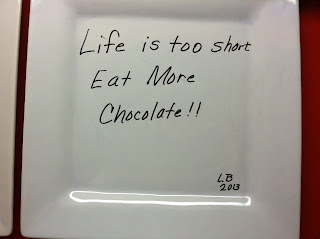 Life is too short
Eat More
Chocolate!!
LB
2013